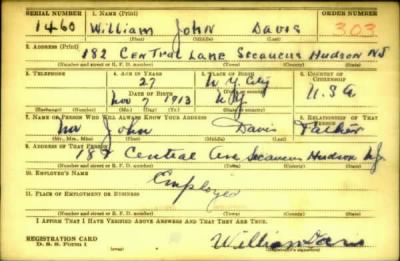 SERIAL NUMBER 1. NAME (Print) ORDER NUMBER
1460 William John Davis 303
(First) (Middle) (Last)
2. ADDRESS (Print)
182 Central Lane Secaucus Hudson NJ
(Number and street or R. F. D. number) (Town) (County) (State)
3. TELEPHONE 4. AGE IN YEARS 5. PLACE OF BIRTH 6. COUNTRY OF CITIZENSHIP
27 N.Y. City
DATE OF BIRTH (Town or county) U.S.A
Nov 7 1913 N.Y.
(Exchange) (Number) (Mo.) (Day) (Yr.) (State or country)
7. NAME OF PERSON WHO WILL ALWAYS KNOW YOUR ADDRESS 8. RELATIONSHIP OF THAT PERSON
Mr John Davis Father
(Mr., Mrs., Miss) (First) (Middle) (Last)
9. ADDRESS OF THAT PERSON
182 Central Ave Secaucus Hudson N.J.
(Number and street or R. F. D. number) (Town) (County) (State)
10. EMPLOYER'S NAME
Employer
11. PLACE OF EMPLOYMENT OR BUSINESS
(Number and street or R. F. D. number) (Town) (County) (State)
I AFFIRM THAT I HAVE VERIFIED ABOVE ANSWERS AND THAT THEY ARE TRUE.
REGISTRATION CARD
D. S. S. Form 1 William Davis
(over) (Registrant's signature)